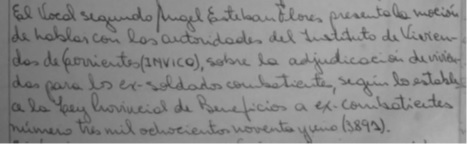 El Vocal segundo Angel Esteban Flores presenta la moción
de hablar con las autoridades del Instituto de Vivien-
das de Corrientes (INVICO), sobre la adjudicación de vivien-
das para los ex-soldados combatiente, según lo estable-
a la Ley Provincial de Beneficios a ex-combatientes
número tres mil ochocientos noventa y uno (3892).